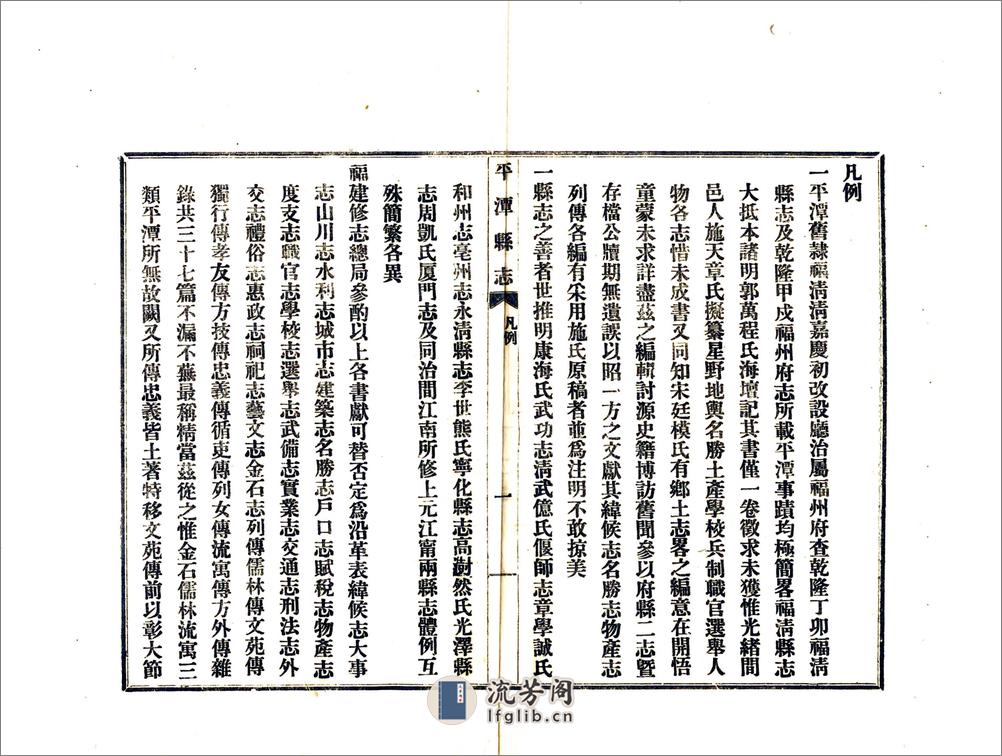 凡例
一平潭舊隸福淸淸嘉慶初改設廳治屬福州府查乾隆丁卯福淸
縣志及乾隆甲戌福州府志所載平潭事蹟均極簡畧福淸縣志
大抵本諸明郭萬程氏海壇記其書僅一卷徵求未獲惟光緒間
邑人施天章氏擬纂星野地輿名勝土產學校兵制職官選舉人
物各志惜未成書又同知宋廷模氏有鄉土志畧之編意在開悟
童蒙未求詳盡茲之編輯討源史籍博訪舊聞參以府縣二志曁
存檔公牘期無遺誤以昭一方之文獻其緯候志名勝志物產志
列傳各編有采用施氏原稿者並爲注明不敢掠美
一縣志之善者世推明康海氏武功志淸武億氏偃師志章學誠氏
平潭縣志
凡例
一
和州志亳州志永淸縣志李世熊氏寧化縣志高澍然氏光澤縣
志周凱氏厦門志及同治間江南所修上元江甯兩縣志體例互
殊簡繁各異
福建修志總局參酌以上各書獻可替否定爲沿革表緯候志大事
志山川志水利志城市志建築志名勝志戶口志賦稅志物產志
度支志職官志學校志選舉志武備志實業志交通志刑法志外
交志禮俗志惠政志祠祀志藝文志金石志列傳儒林傳文苑傳
獨行傳孝友傳方技傳忠義傳循吏傳列女傳流寓傳方外傳雜
錄共三十七篇不漏不蕪最稱精當茲從之惟金石儒林流寓三
類平潭所無故闕又所傳忠義皆土著特移文苑傳前以彰大節
流芳阁
lfglib.cn